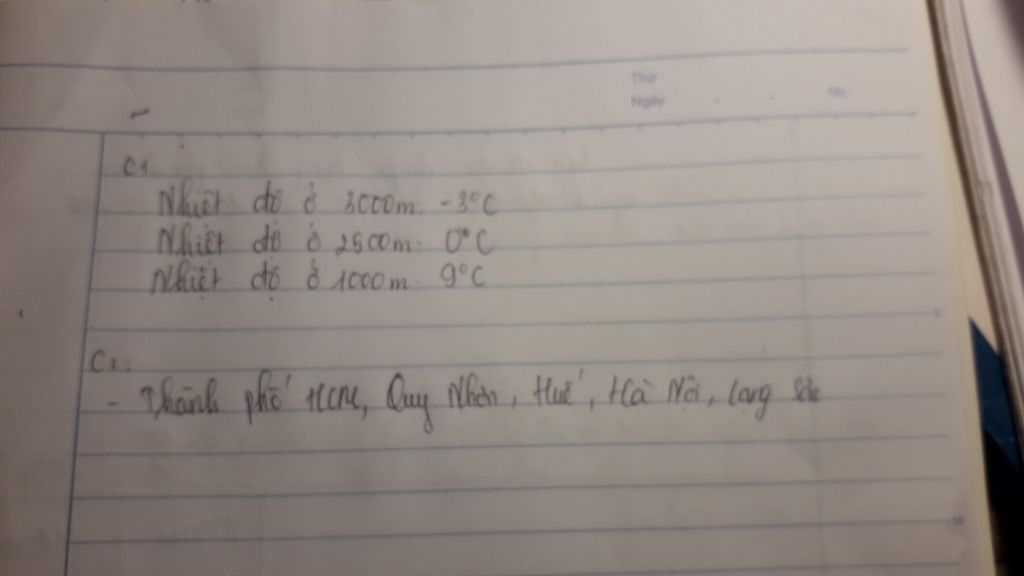 Thứ
Ngày
No.
C1
Nhiệt độ ở 3000m: -3°C
Nhiệt độ ở 2500m: 0°C
Nhiệt độ ở 1000m: 9°C
C2:
- Thành phố HCM, Quy Nhơn, Huế, Hà Nội, Lạng Sơn